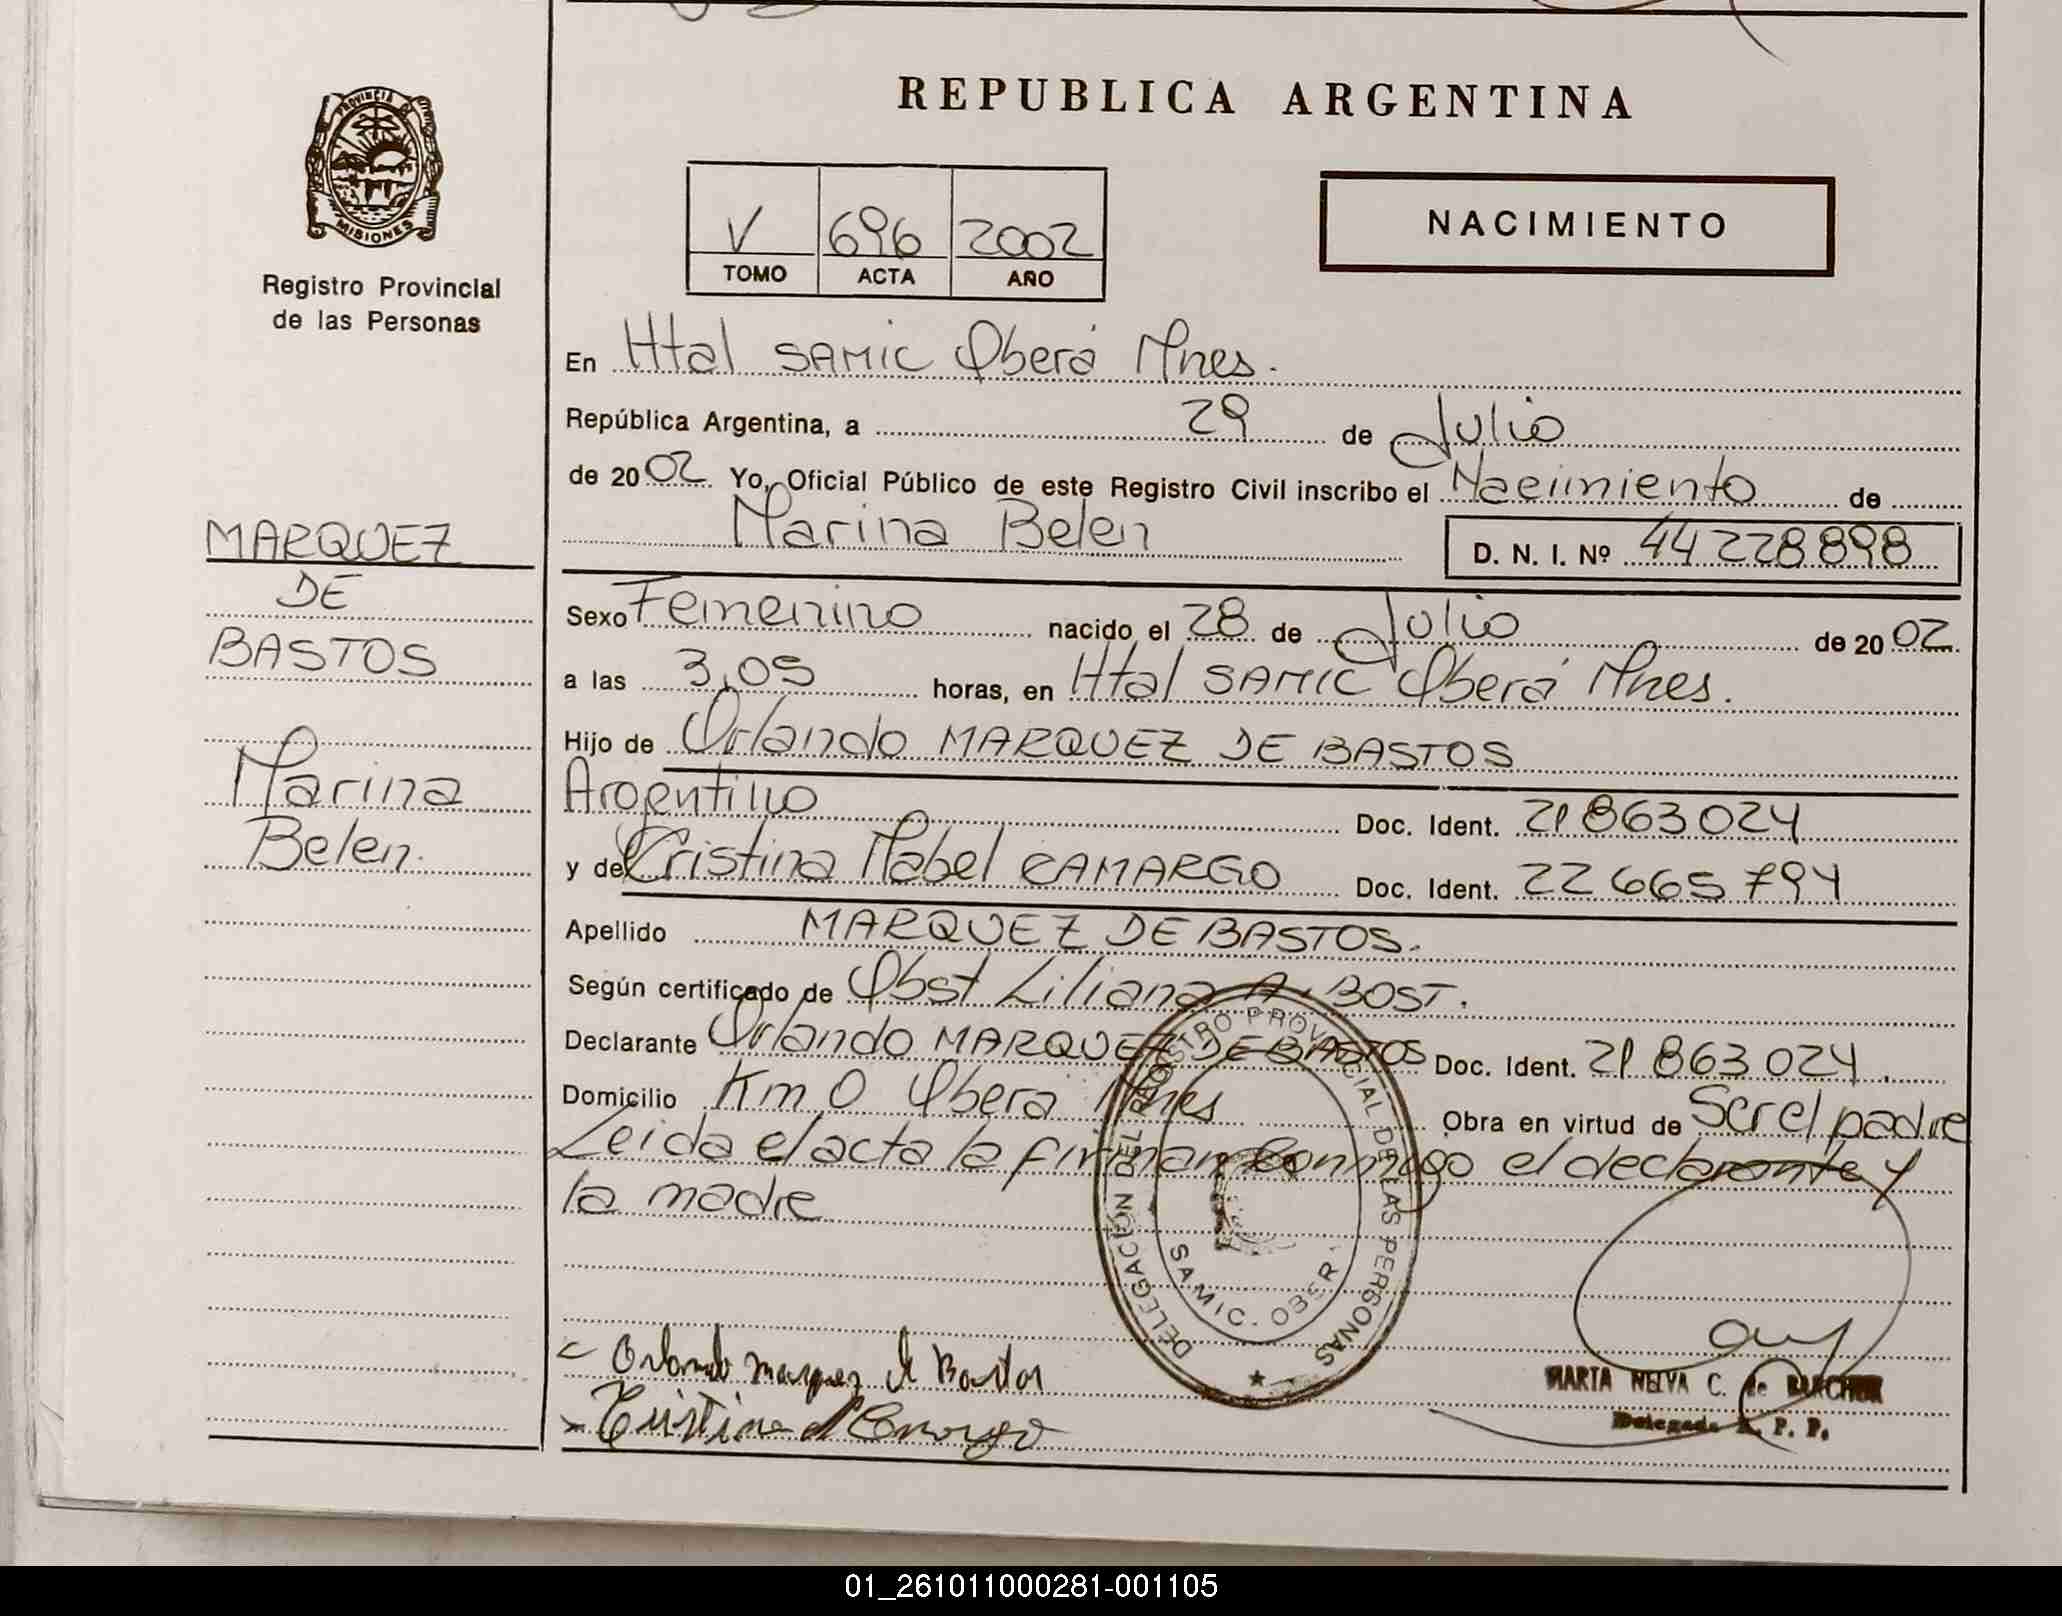 REPUBLICA ARGENTINA
PROVINCIA DE
MISIONES
Registro Provincial
de las Personas
V 696 2002
TOMO ACTA AÑO
NACIMIENTO
En Htal SAMIC Oberá Mnes.
República Argentina, a 29 de Julio
de 2002. Yo, Oficial Público de este Registro Civil inscribo el Nacimiento de
Marina Belen
D. N. I. Nº 44 228 898
MARQUEZ
DE
BASTOS
Marina
Belen.
Sexo Femenino nacido el 28 de Julio de 2002.
a las 3,05 horas, en Htal SAMIC Oberá Mnes.
Hijo de Orlando MARQUEZ DE BASTOS
Argentino Doc. Ident. 21 863 024
y de Cristina Mabel CAMARGO Doc. Ident. 22 665 794
Apellido MARQUEZ DE BASTOS.
Según certificado de Obst Liliana A. BOST.
Declarante Orlando MARQUEZ DE BASTOS Doc. Ident. 21 863 024.
Domicilio Km 0 Oberá Mnes Obra en virtud de Ser el padre
Leida el acta la firman conmigo el declarante y
la madre
DELEGACIÓN DEL REGISTRO PROVINCIAL DE LAS PERSONAS
SAMIC. OBER
Orlando Marquez de Bastos
Cristina
MARTA NELVA C. de
Delegada R. P. P.
01_261011000281-001105